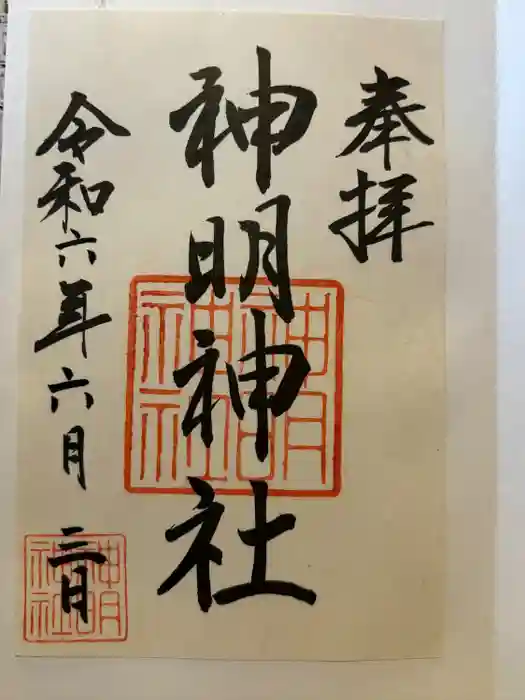 奉拝
神明神社
令和六年六月二日
神明
神社
神明
神社